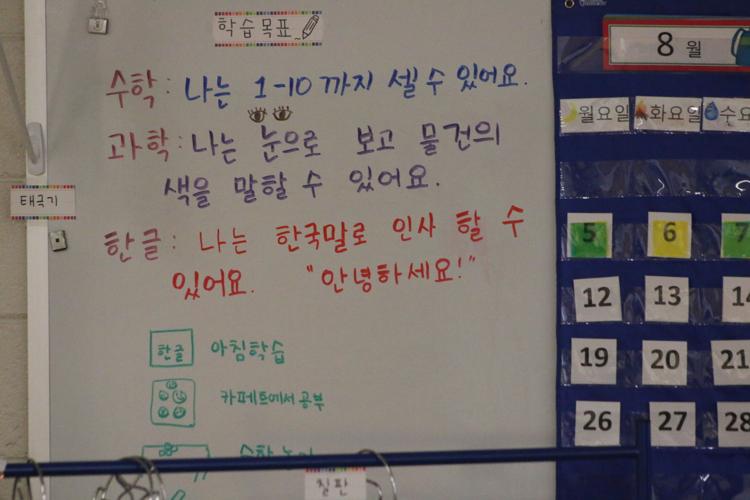 학습목표
수학: 나는 1-10 까지 셀 수 있어요.
과학: 나는 눈으로 보고 물건의
색을 말할 수 있어요.
한글: 나는 한국말로 인사 할 수
있어요. "안녕하세요!"
한글 아침학습
카페트에서 공부
수학
칠판
태극기
8 월
월요일 화요일 수요
5 6 7
12 13 14
19 20 21
26 27 28